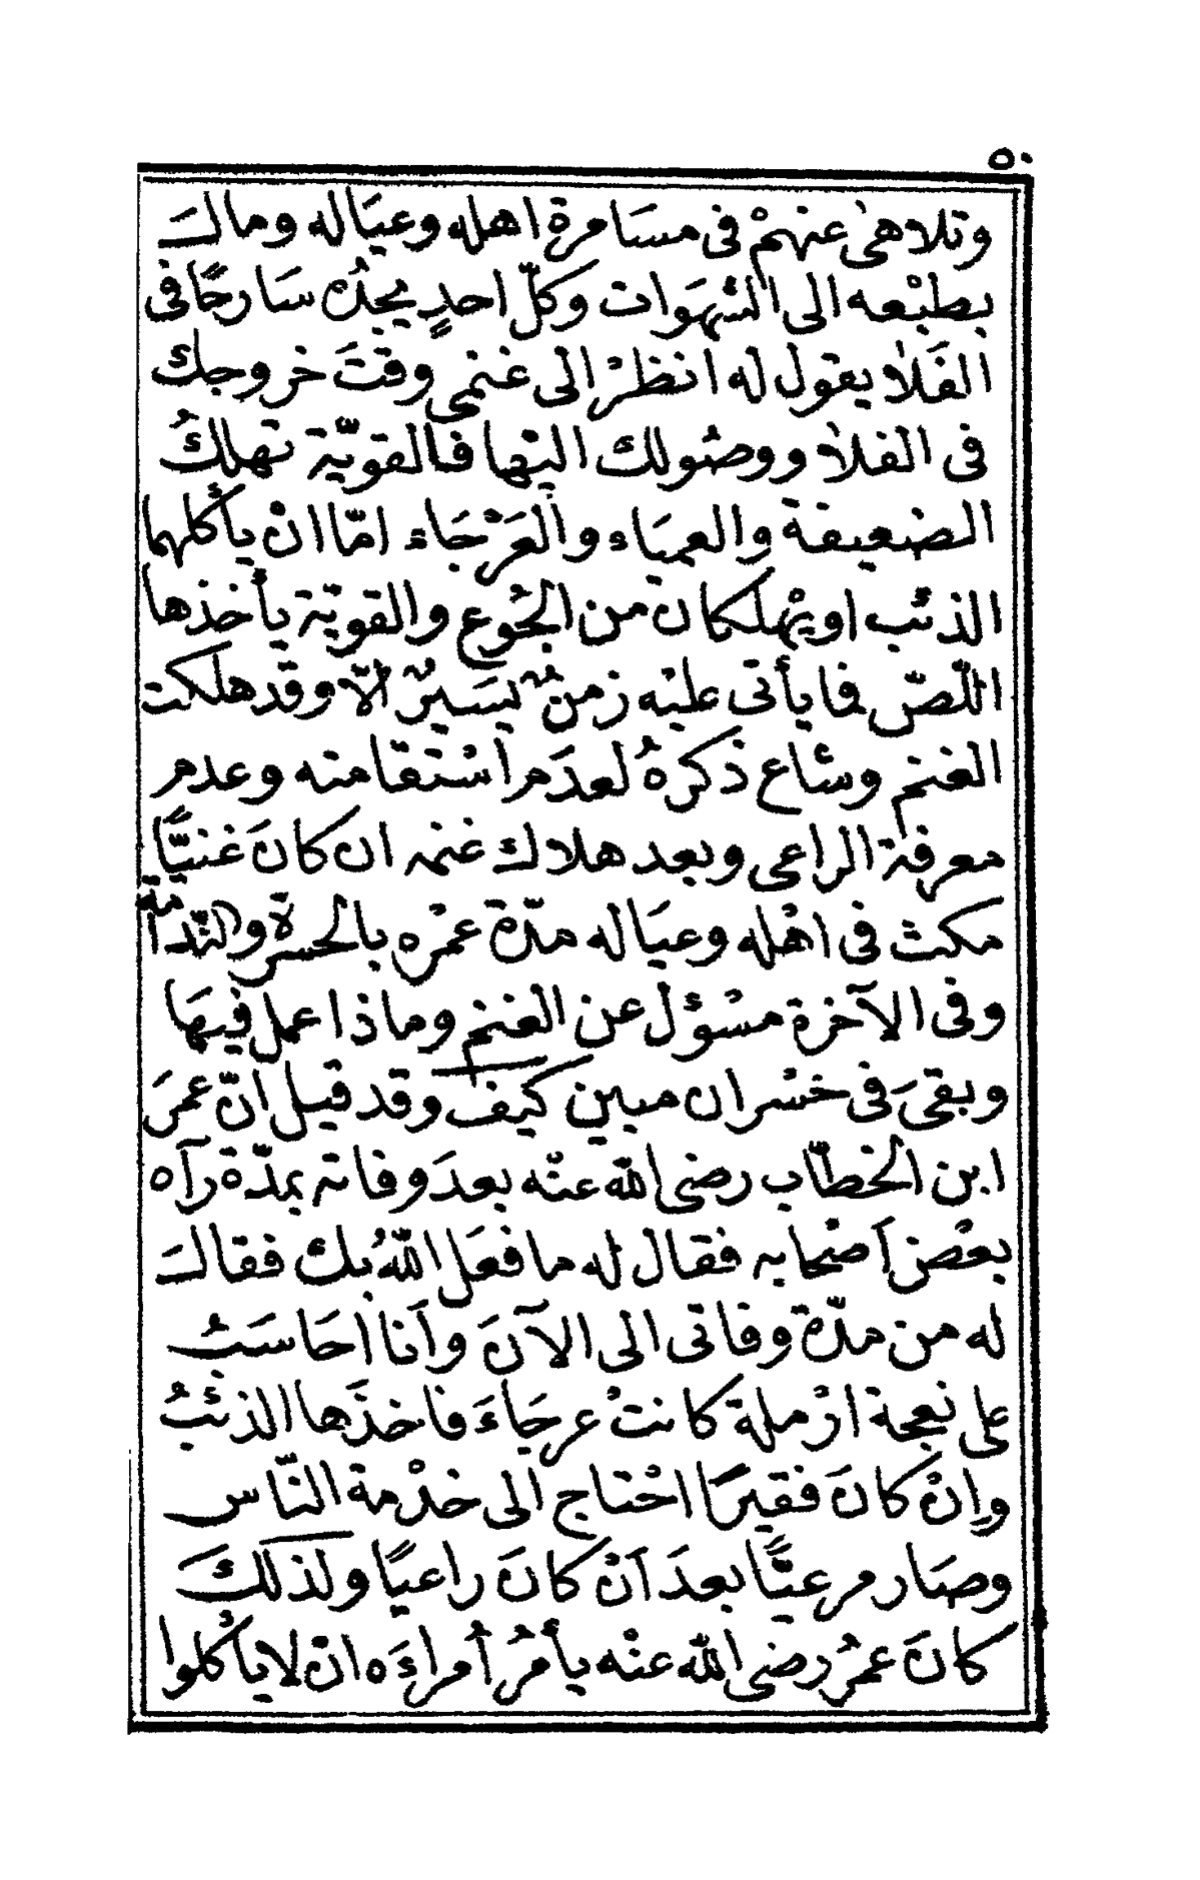 ٥٠
وتلاهىٰ عنهمْ فى مسَامرة اهله وعيَاله ومالَ
بطبْعه الى الشهَوات وكلّ احدٍ يجدُه سَارحًا فى
الفَلاٰ يقول له انظرْ الى غنمى وقتَ خروجك
فى الفلاٰ ووصُولك اليْها فالقويّة تهلكُ
الضعيفة والعميَاء والعَرْجَاء امّا انْ يأكلهما
الذئب او يهْلكان من الجُوع والقويّة يأخذها
اللّصّ فما يأتى عليْه زمنٌ يسَيرٌ الّا وقد هلكت
الغنم وشاع ذكرهُ لعدَم اسْتقَامته وعدم
معرفة الراعى وبعد هلاك غنمه ان كانَ غنيًّا
مكث فى اهْله وعيَاله مدّة عمْره بالحسرة والنّدامة
وفى الآخرة مسْؤل عن الغنم وماذا عمل فيهَا
وبقىَ فى خسْران مبين كيف وقد قيل انّ عمرَ
ابن الخطّاب رضى الله عنْه بعدَ وفاته بمدّة رآه
بعْض اَصْحابه فقال له ما فعَل اللهُ بك فقالَ
له من مدّة وفاتى الى الآنَ واَنا احَاسَبُ
على نعجة ارْملة كانتْ عرجَاءَ فاخذَها الذئبُ
وإنْ كانَ فقيرًا احْتاج الى خدْمة النّاس
وصَار مرعيًّا بعدَ اَنْ كانَ راعيًا ولذلك
كانَ عمرُ رضى الله عنْه يأمرُ أمراءَه انْ لا يأكلوا